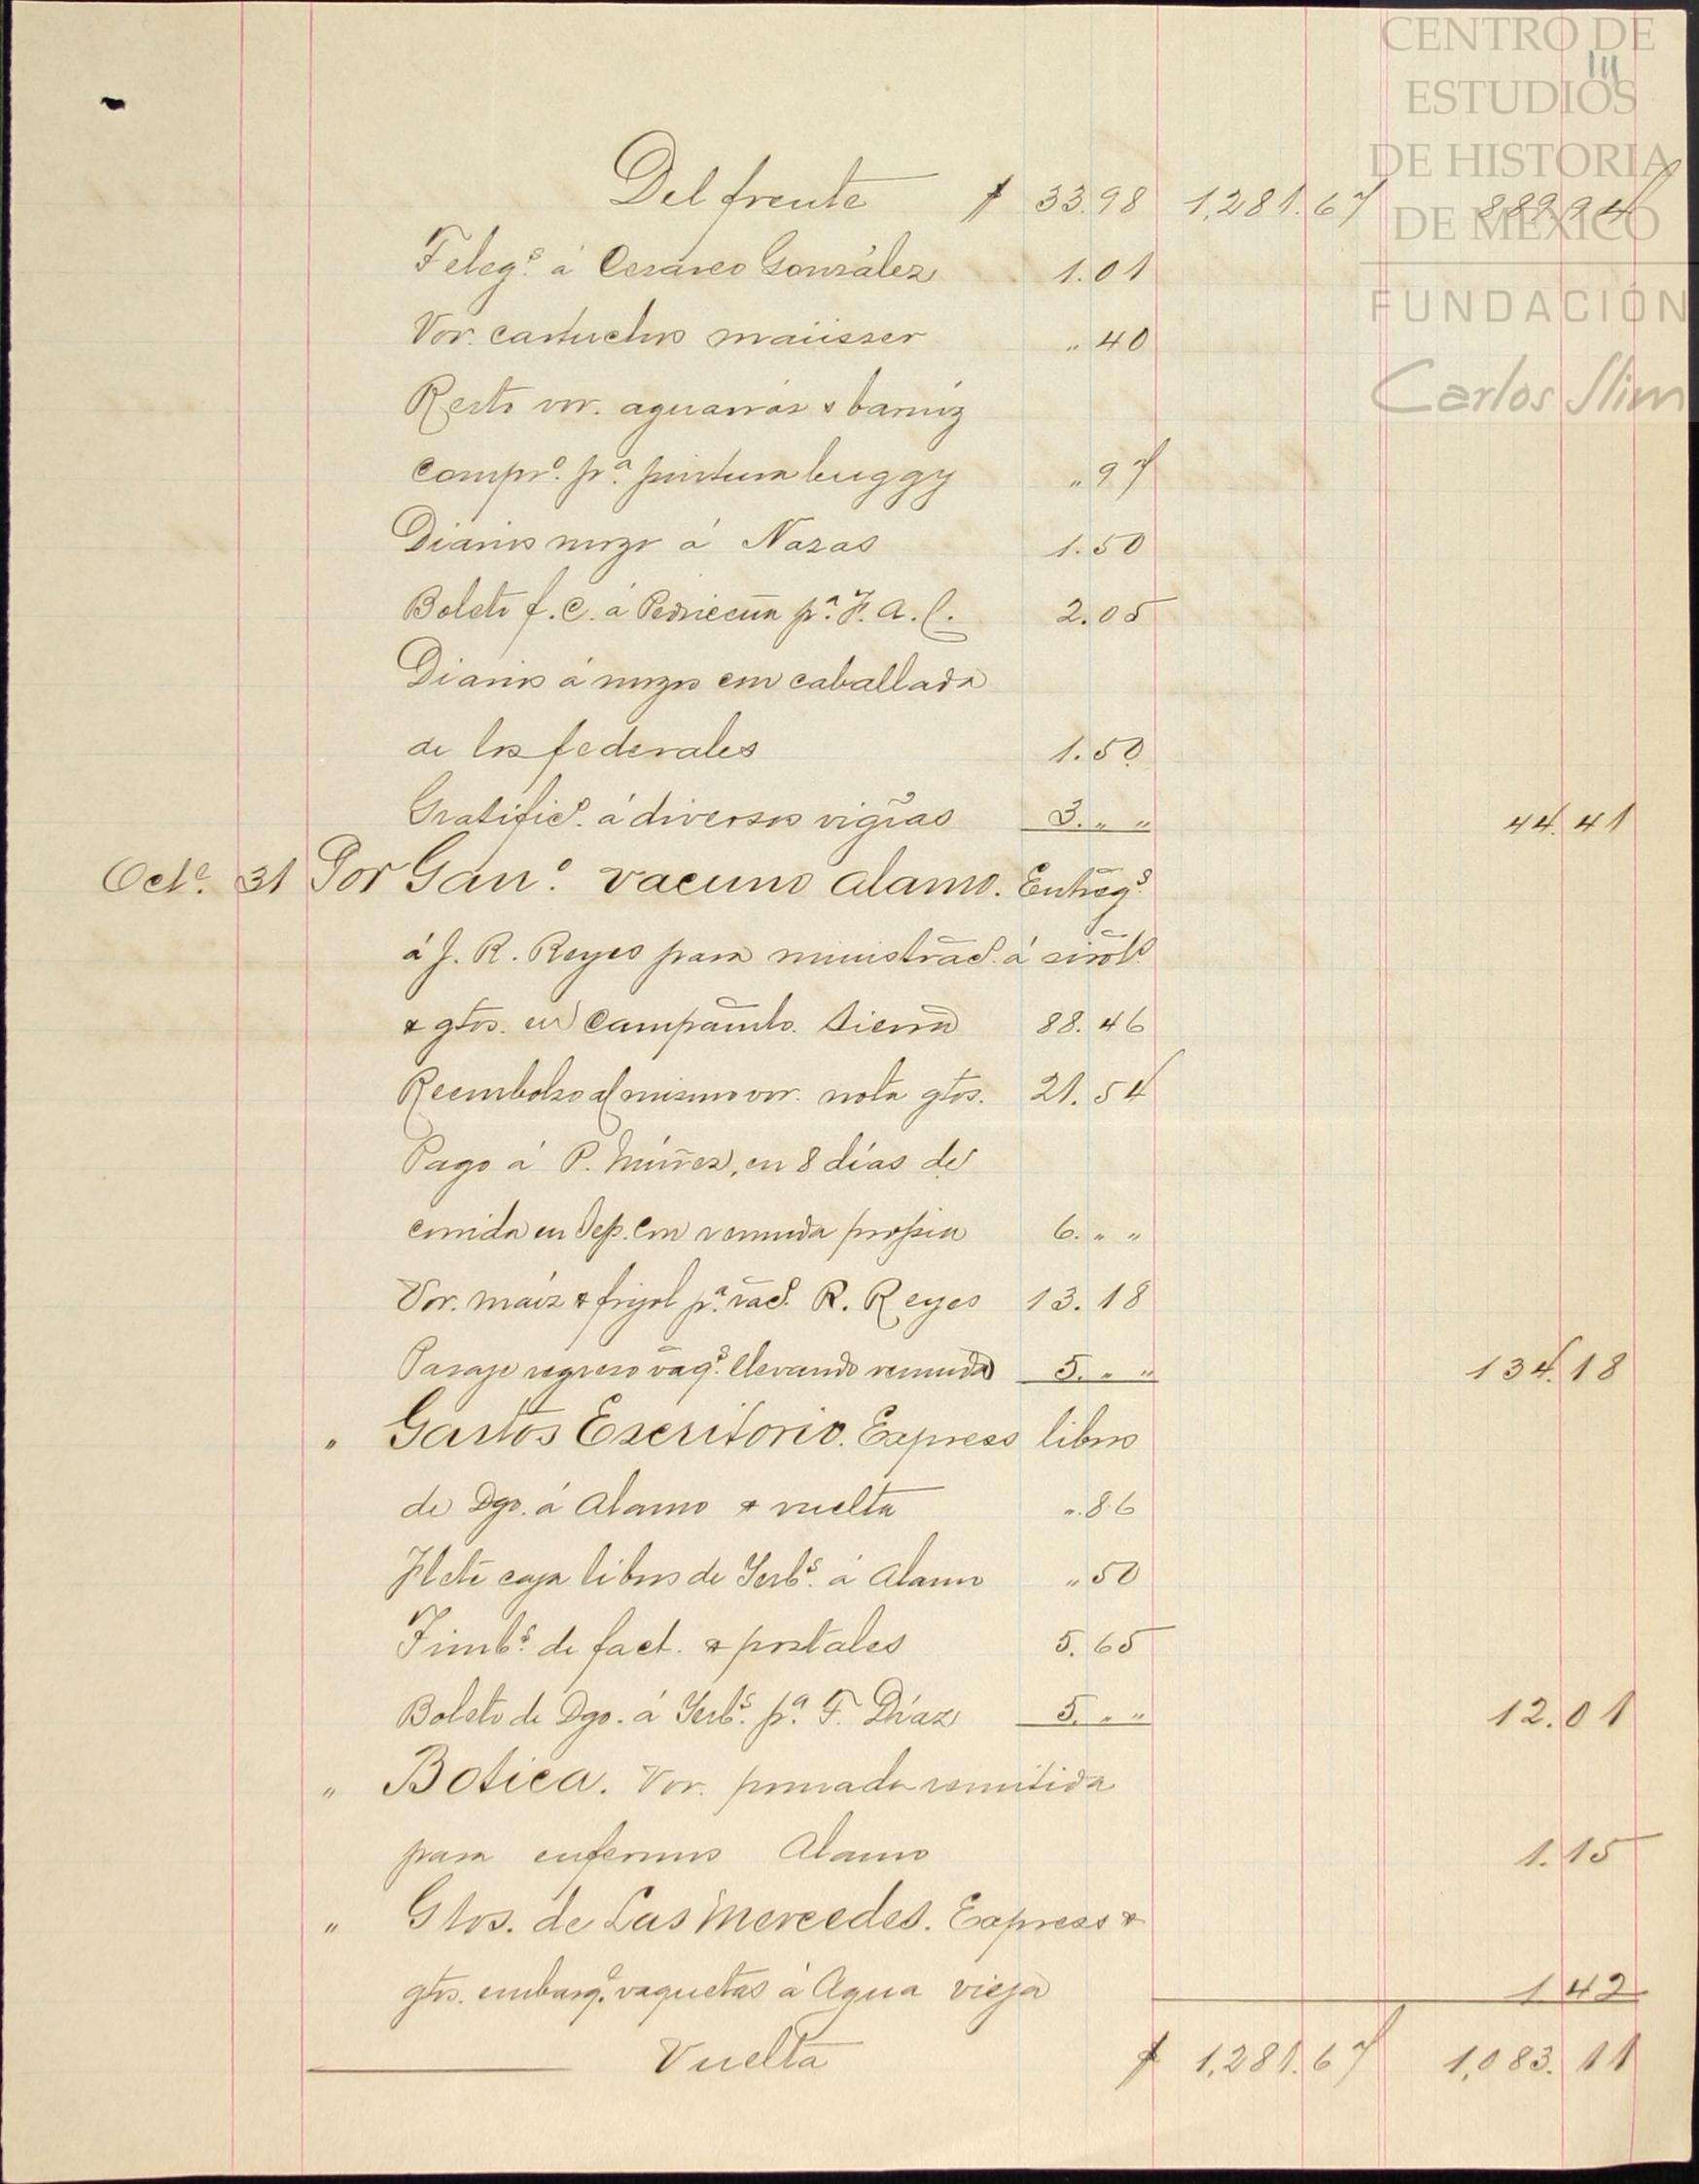 CENTRO DE
ESTUDIOS
DE HISTORIA
DE MÉXICO
FUNDACIÓN
Carlos Slim
111
Del frente $ 33.98 1,281.67 889.94
Telegs. á Cesareo González 1.01
Vor. cartuchos maüsser " 40
Resto vor. aguarrás & barniz
compro. pa. pintura buggy " 97
Diarios mozo á Nazas 1.50
Boleto f. c. á Pedriceña pa. F. A. C. 2.05
Diarios á mozos con caballada
de los federales 1.50
GratificS. á diversos vigías 3. " " 44.41
Octe. 31 Por Gano. vacuno Alamo. Entregs.
á J. R. Reyes para ministrac. á
& gtos. en Campamto. Sierra 88.46
Reembolso al mismo vor. nota gtos. 21.54
Pago á P. Núñez, en 8 días de
comida en Sep. con remuda propia 6. " "
Vor. maíz & frijol pa. rac. R. Reyes 13.18
Pasaje regreso vaqs. llevando remuda 5. " " 134.18
" Gastos Escritorio. Express libros
de Dgo. á Alamo & vuelta ".86
Flete caja libros de Yerbs. á Alamo " 50
Timbs. de fact. & postales 5.65
Boleto de Dgo. á Yerbs. pa. F. Díaz 5. " " 12.01
" Botica. Vor. pomada remitida
para enfermos Alamo 1.15
" Gtos. de Las Mercedes. Express &
gtos. embarqe. vaquetas á Agua vieja 1 42
Vuelta $ 1,281.67 1,083.11